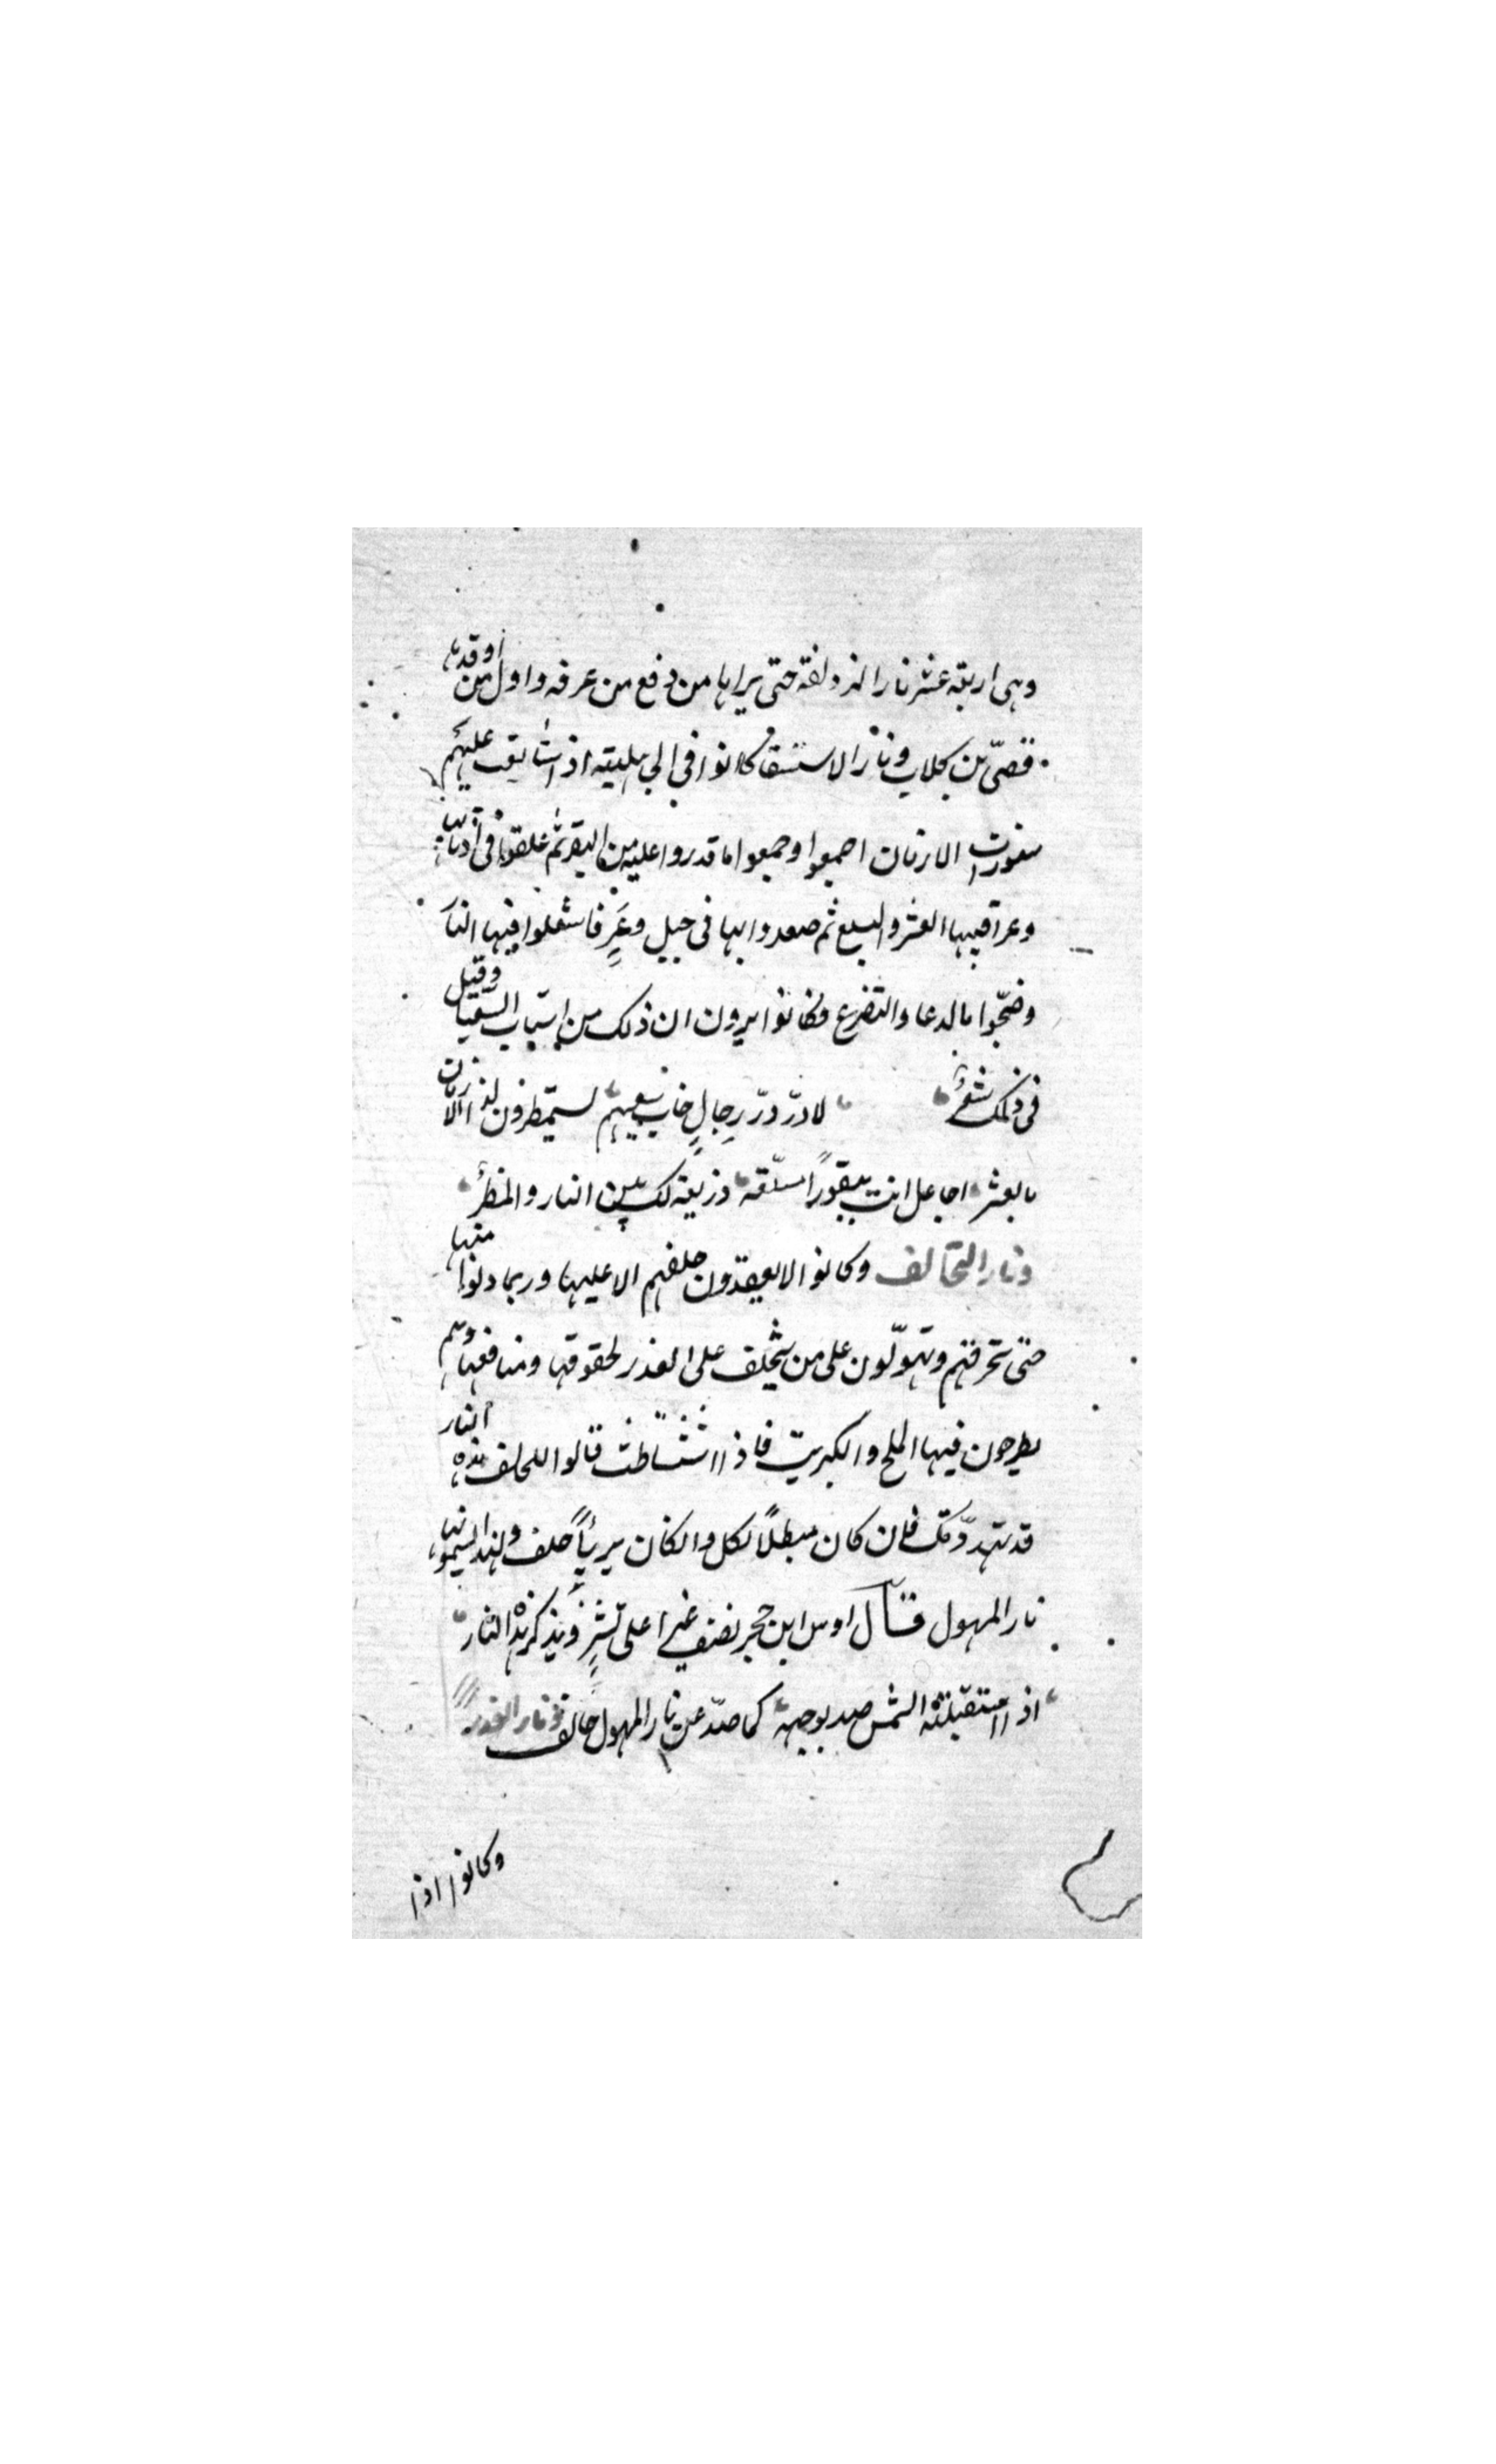 وهى اربعة عشر نار المزدلفة حتى يراها من دفع من عرفه واول من اوقدها
قصىّ بن كلاب ونار الاستسقا كانوا فى الجاهلية اذا تتابعت عليهم
الازمان اجمعوا وجمعوا ما قدروا عليه من البقر ثم علقوا فى أذنابها
وعراقيبها العشر والسلع ثم صعدوا بها فى جبل وعرٍ فاشعلوا فيها النار
وضجّوا بالدعا والتضرع وكانوا يرون ان ذلك من اسباب السقيا وقيل
فى ذلك شعر لا درّ درّ رجالٍ خاب سعيهم يستمطرون لذى الازمان
بالعشر اجاعل انت بيقوراً مسلّعة ذريعة لك بين النار والمطر
ونار التحالف وكانوا لا يعقدون حلفهم الا عليها وربما دنوا منها
حتى تحرقهم ويهوّلون على من يحلف على الغدر لحقوقها ومنافعها وهم
يطرحون فيها الملح والكبريت فاذا استشاطت قالوا للحالف هذه النار
قد تهدّدتك فان كان مبطلاً نكل وان كان بريئاً حلف ولهذا يسمونها
نار المهول قال اوس ابن حجر يصف عيرا على نشزٍ ويذكر هذه النار
اذا استقبلته الشمس صد بوجهه كما صدّ عن نار المهول حالف ونار الغدر
وكانوا اذا